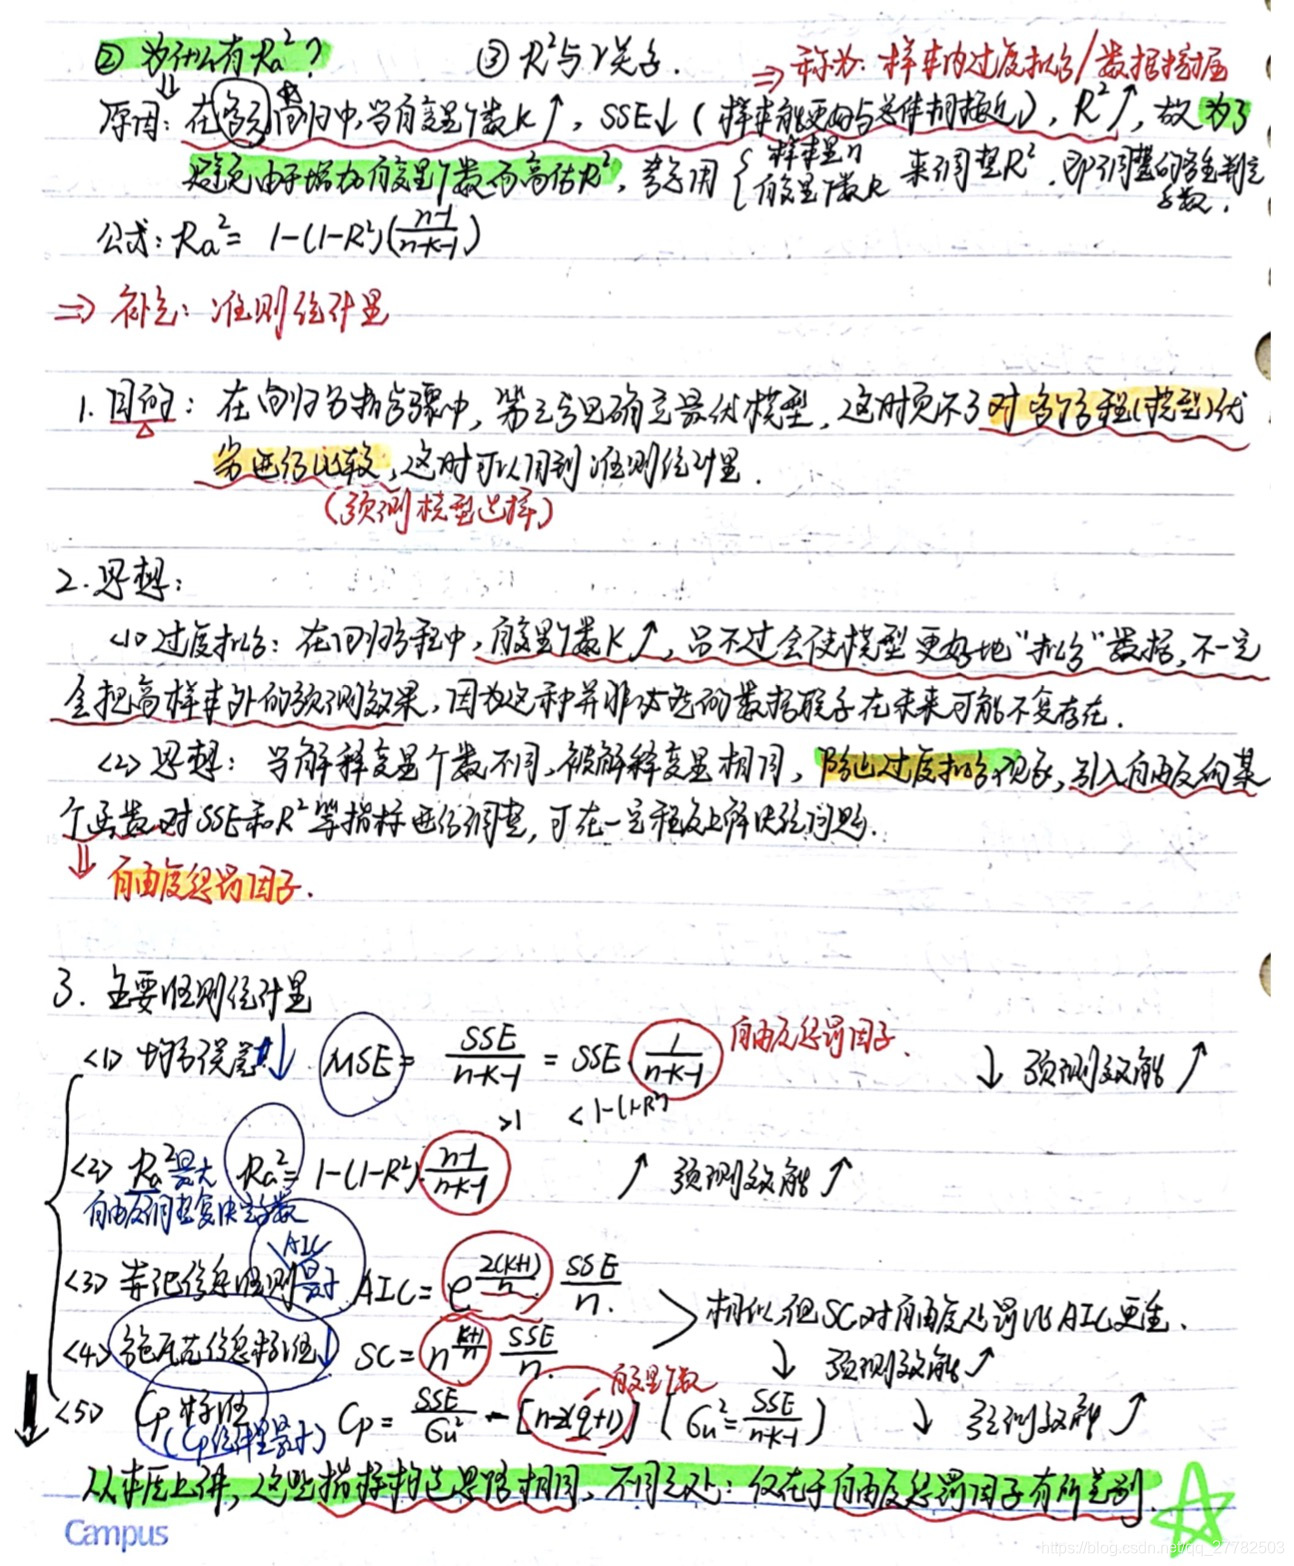 ② 为什么有Ra²? ③ R²与r关系. ⇒ 称为: 样本内过度拟合/数据挖掘
原因: 在多元回归中, 当自变量个数K↑, SSE↓ (样本能更好与总体相接近), R²↑, 故为了
避免由于增加自变量个数而高估R², 考虑用 { 样本量n 自变量个数K 来调整R². 即调整的多重判定系数.
公式: Ra² = 1-(1-R²)(n-1/n-k-1)
⇒ 补充: 准则统计量
1. 目的: 在回归分析步骤中, 第三步是确定最优模型, 这时免不了对各个方程(模型)优
劣进行比较, 这时可以用到准则统计量.
(预测模型选择)
2. 思想:
<1> 过度拟合: 在回归方程中, 自变量个数K↑, 只不过会使模型更好地"拟合"数据, 不一定
会提高样本外的预测效果, 因为这种并非必然的数据联系在未来可能不复存在.
<2> 思想: 当解释变量个数不同, 被解释变量相同, 防止过度拟合现象, 引入自由度的某
个函数对SSE和R²等指标进行调整, 可在一定程度上解决该问题.
⇓ 自由度惩罚因子.
3. 主要准则统计量
<1> 均方误差↓ MSE = SSE/n-k-1 = SSE·1/n-k-1 自由度惩罚因子. ↓ 预测效能↑
>1 <1-(1-R²)
<2> Ra²最大 Ra² = 1-(1-R²)·n-1/n-k-1 ↑ 预测效能↑
自由度调整复决定系数
AIC
<3> 赤池信息准则最小 AIC = e^(2(k+1)/n) SSE/n. > 相似, 但SC对自由度处罚比AIC更重.
<4> 施瓦茨信息标准↓ SC = n^(k+1/n) SSE/n. ↓ 预测效能↗
自变量个数
<5> Cp 标准 Cp = SSE/σu² - [n-2(q+1)] (σu² = SSE/n-k-1) ↓ 预测效能↑
(Cp统计量最小)
从本质上讲, 这些指标构造思路相同, 不同之处: 仅在于自由度惩罚因子有所差别.
Campus
https://blog.csdn.net/qq_27782503